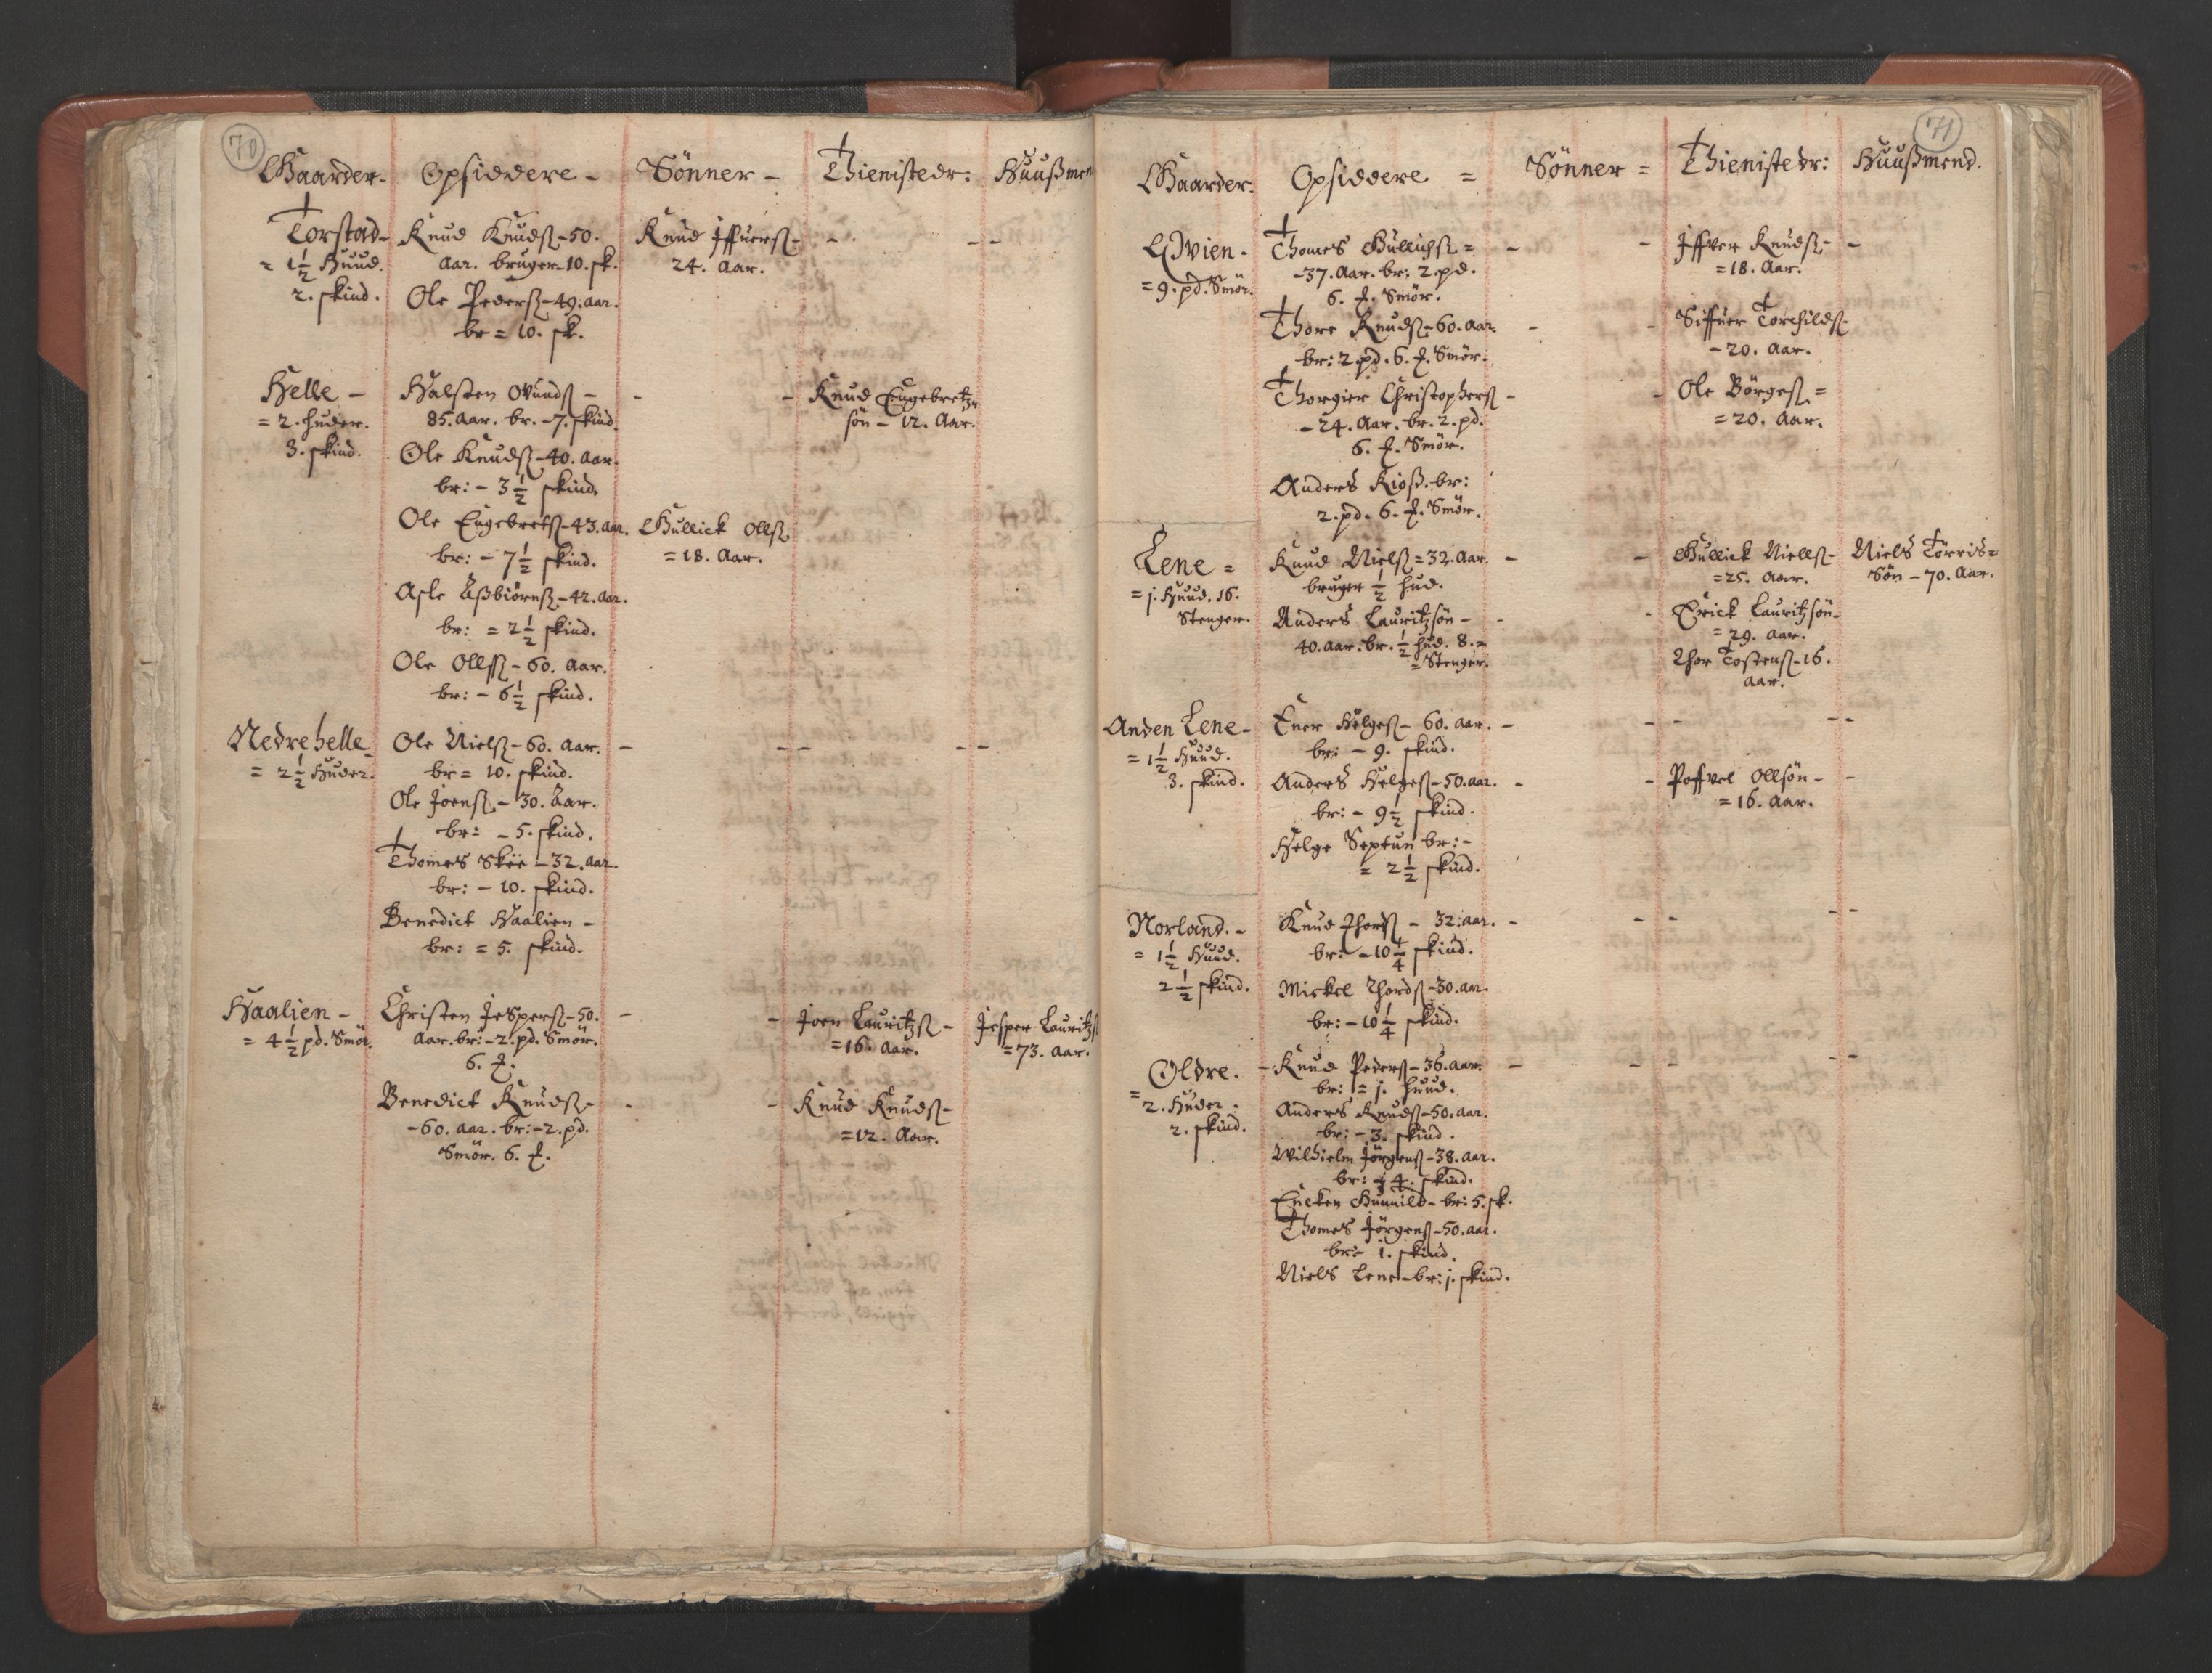 70
Gaarder - Opsiddere - Sönner - Thienistedr: Huußmen
Torstad -
= 1½ Huud.
2. skind.
Knud Knudß - 50.
Aar. bruger - 10. sk.
Ole Pederß - 49. aar.
br = 10. sk.
Knud Iffuerß -
24. Aar.
Helle -
= 2. huder.
3. skind.
Halsten
85. Aar. br. - 7. skind.
Ole Knudß - 40. aar.
br: - 3½ skind.
Ole Engebretß - 43. aar.
br: - 7½ skind.
Asle Aßbiörnß - 42. aar.
br: = 2½ skind.
Ole Ollß - 60. aar.
br: - 6½ skind.
Gullick Ollß
= 18. Aar.
Knud Engebretz
sön - 12. Aar.
Nedre helle
= 2½ Huder.
Ole Nielß - 60. aar.
br = 10. skind.
Ole Joenß - 30. Aar.
br: - 5. skind.
Thomes Skee - 32. aar.
br: - 10. skind.
Benedict Haalien -
br: = 5. skind.
Haalien -
= 4½ pd. Smör.
Christen Jesperß - 50.
Aar. br: - 2. pd. Smör.
6. ℔.
Benedict Knudß -
- 60. aar. br: - 2. pd.
Smör. 6. ℔.
Joen Lauritzß -
= 16. Aar.
Knud Knudß -
= 12. Aar.
Jesper Lauritzß
= 73. aar.
71
Gaarder. Opsiddere = Sönner = Thienistedr: Huußmend.
Qvien -
= 9. pd. Smör.
Thomes Gullichß =
- 37. Aar. br: 2. pd.
6. ℔. Smör.
Thore Knudß - 60. aar.
br: 2 pd. 6. ℔. Smör.
Thorgier Christopherß -
- 24. Aar. br. 2. pd.
6. ℔. Smör.
Anders Kioß. br:
2. pd. 6. ℔. Smör.
Iffver Knudß -
= 18. Aar.
Siffuer Torchildß -
- 20. Aar.
Ole Börgeß =
= 20. Aar.
Lene =
= j. Huud. 16.
Stenger.
Knud Nielß = 32. Aar.
bruger ½ hud.
Anders Lauritzsön -
40. aar. br. ½ hud. 8. =
= Stenger.
Gullick Niellß -
= 25. Aar.
Erick Lauritzsön -
= 29. Aar.
Thor Tostenß - 16.
aar.
Niels Törris =
Sön - 70. Aar.
Anden Lene -
= 1½ Huud.
3. skind.
Ener Helgeß - 60. aar.
br: - 9. skind.
Anders Helgeß - 50. aar.
br: - 9½ skind.
Helge Septun br: -
= 2½ skind.
Poffvel Ollsön -
= 16. Aar.
Norland. -
= 1½ Huud.
2½ skind.
Knud Thorß - 32. aar.
br: - 10¼ skind.
Mickel Thordß - 30. aar.
br: - 10¼ skind.
Oldre. -
= 2. Huder -
2. skind.
Knud Pederß - 36. aar.
br: = j. huud.
Anders Knudß - 50. aar.
br: - 3. skind.
Wilhielm Jörgenß - 38. aar.
br: 4. skind.
Encken Gunnild - br: 5. sk.
Thomes Jörgenß - 50. aar.
br: 1. skind.
Niels Lene - br: j. skind.